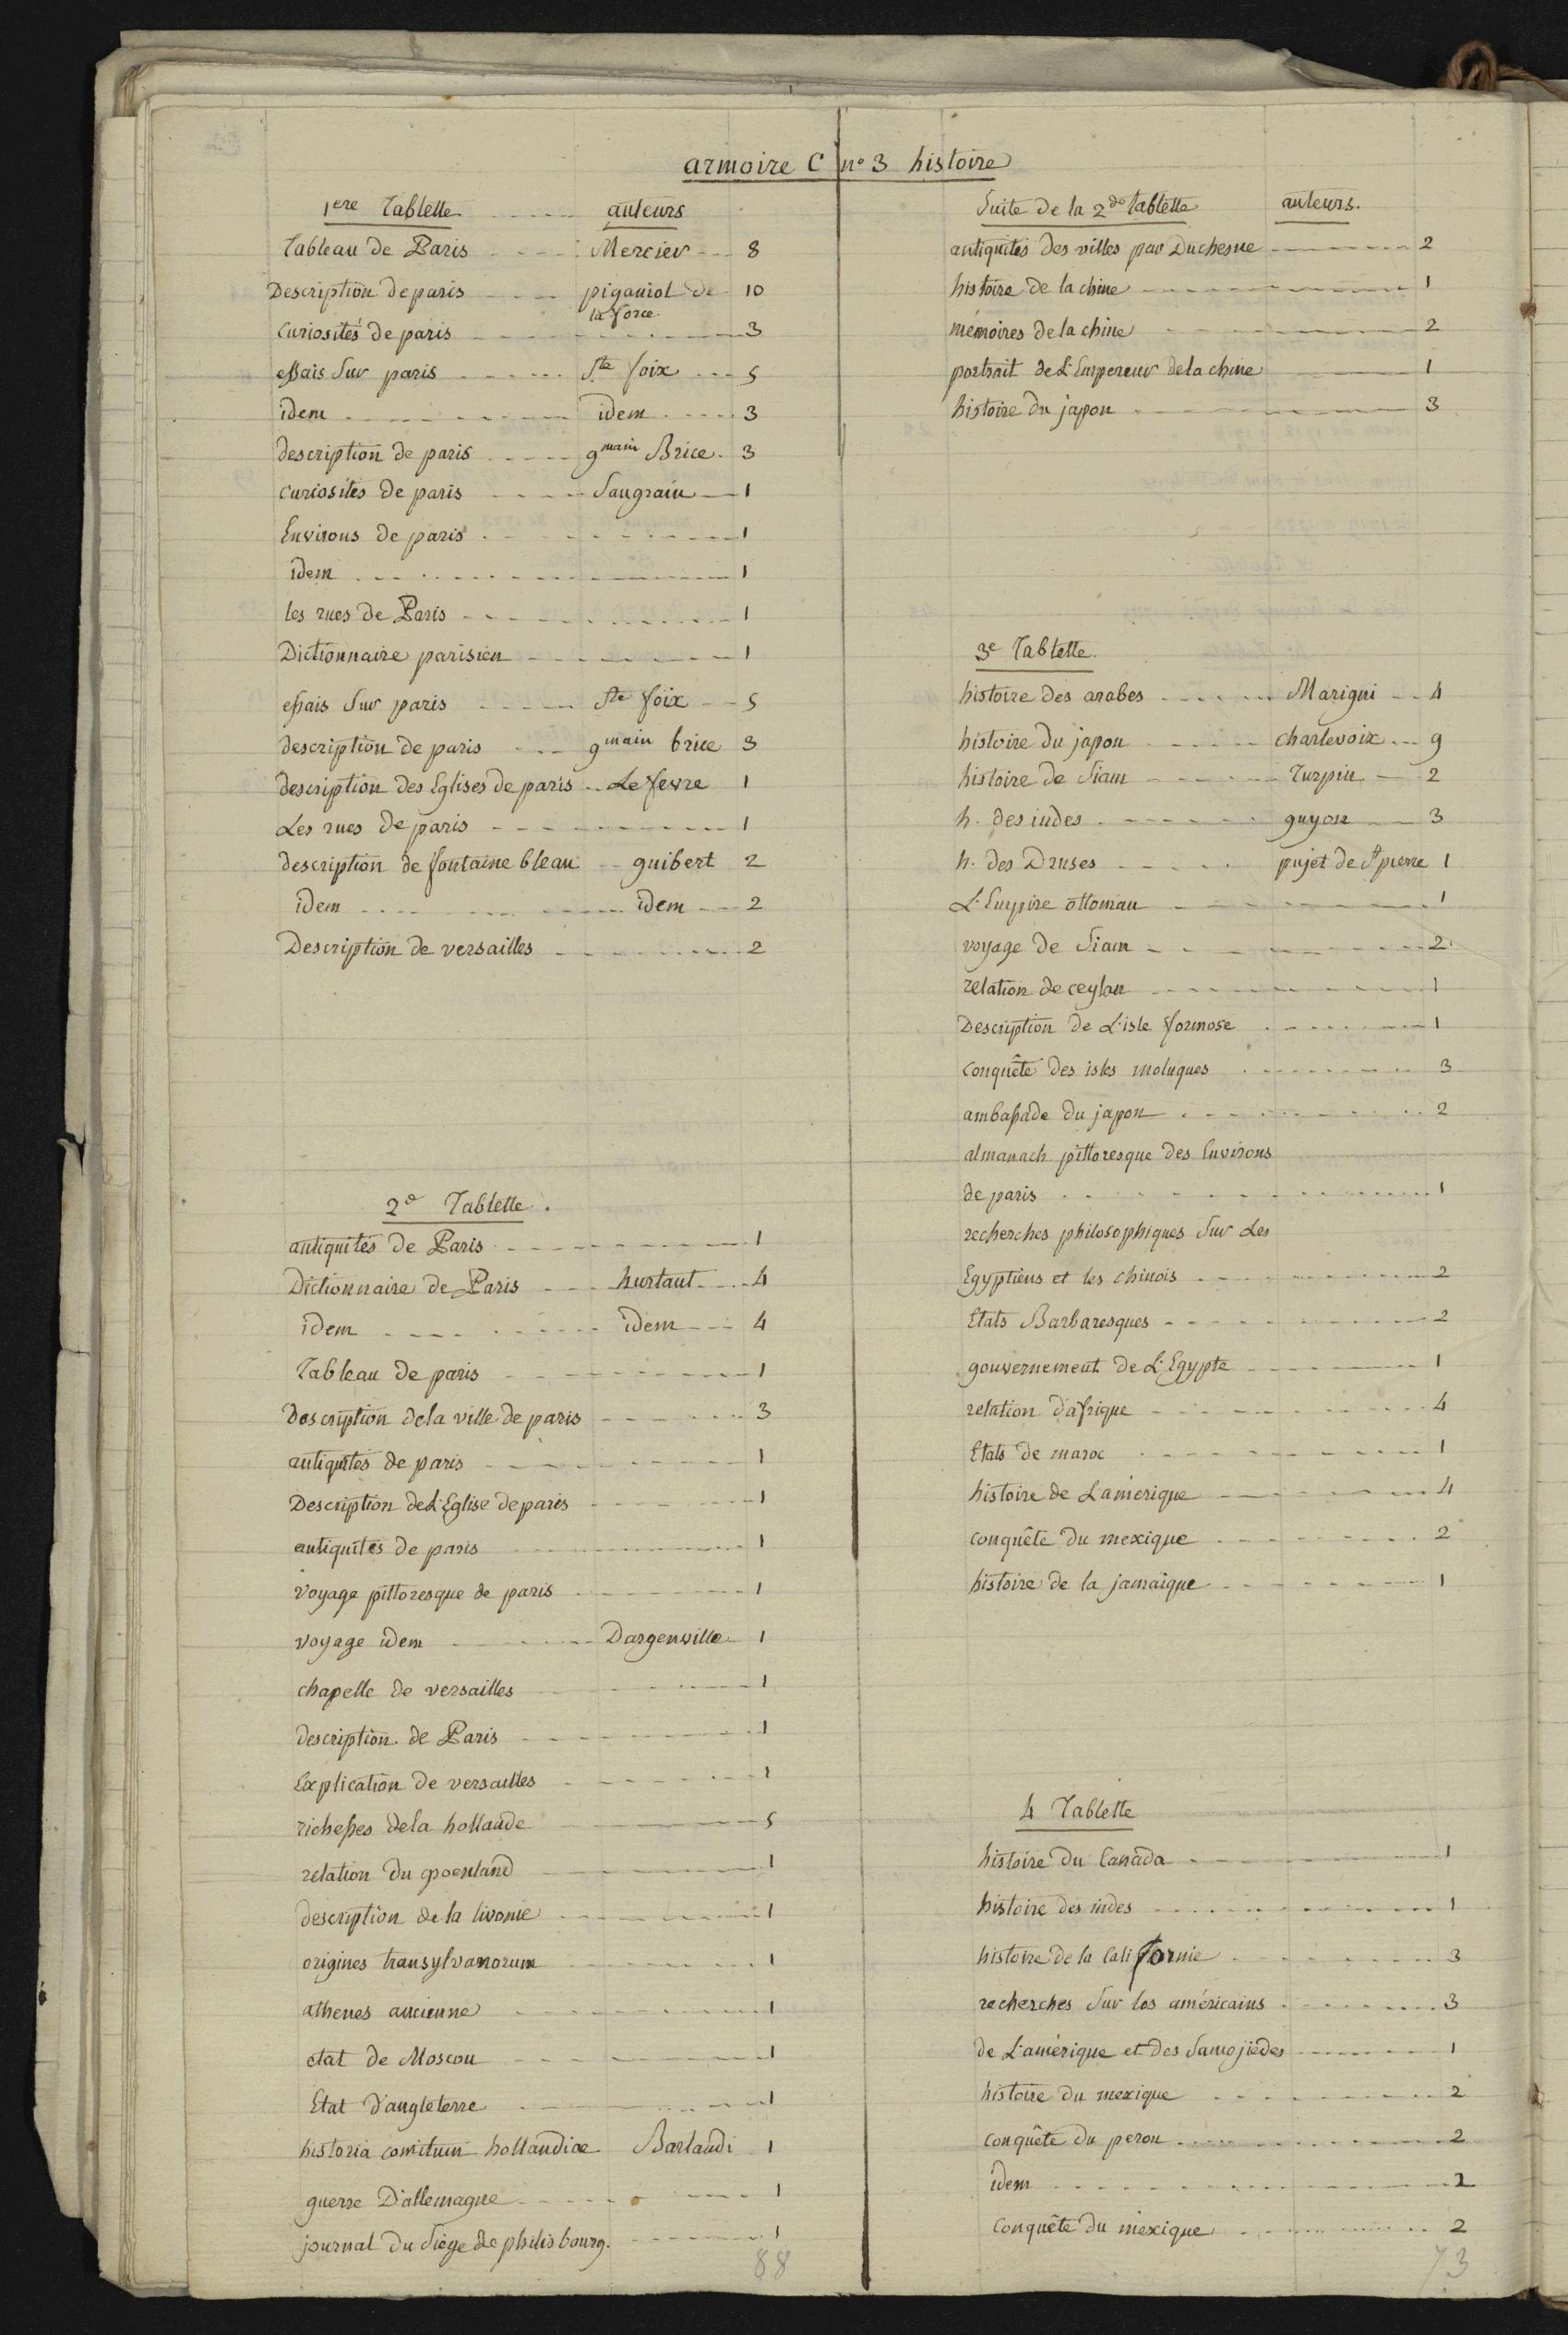 armoire C n° 3 histoire
1ere Tablette auteurs
Tableau de Paris Mercier 8
Description de paris piganiol de 10
la force.
curiosités de paris 3
essais Sur paris Ste foix 5
idem idem 3
description de paris gmain Brice. 3
curiosités de paris Saugrain 1
Environs de paris 1
idem 1
les rues de Paris 1
Dictionnaire parisien 1
essais Sur paris Ste foix 5
description de paris gmain brice 3
description des Eglises de paris Le fevre 1
Les rues de paris 1
description de fontaine bleau guibert 2
idem idem 2
Description de versailles 2
2e Tablette.
antiquités de Paris 1
Dictionnaire de Paris hurtaut 4
idem idem 4
Tableau de paris 1
description de la ville de paris 3
antiquités de paris 1
Description de L'Eglise de paris 1
antiquités de paris 1
voyage pittoresque de paris 1
voyage idem Dargenville 1
chapelle de versailles 1
description de Paris 1
Explication de versailles 1
richesses de la hollande 5
relation du groenland 1
description de la livonie 1
origines transylvanorum 1
athenes ancienne 1
etat de Moscou 1
Etat d'angleterre 1
historia comitum hollandiae Barlandi 1
guerre D'allemagne 1
journal du Siége de philisbourg. 1
88
Suite de la 2de tablette auteurs.
antiquités des villes par Duchesne 2
histoire de la chine 1
mémoires de la chine 2
portrait de L'Empereur de la chine 1
histoire du japon 3
3e Tablette.
histoire des arabes Marigni 4
histoire du japon charlevoix 9
histoire de Siam Turpin 2
h. des indes guyon 3
h. des Druses pujet de St pierre 1
L'Empire ottoman 1
voyage de Siam 2
relation de ceylan 1
Description de L'isle formose 1
conquête des isles moluques 3
ambassade du japon 2
almanach pittoresque des Environs
de paris 1
recherches philosophiques Sur Les
Egyptiens et les chinois 2
Etats Barbaresques 2
gouvernement de L'Egypte 1
relation d'afrique 4
Etats de maroc 1
histoire de L'amérique 4
conquête du mexique 2
histoire de la jamaïque 1
4 Tablette
histoire du Canada 1
histoire des indes 1
histoire de la Californie 3
recherches Sur les américains 3
de L'amérique et des Samojiédes 1
histoire du mexique 2
conquête du perou 2
idem 2
Conquête du mexique 2
73